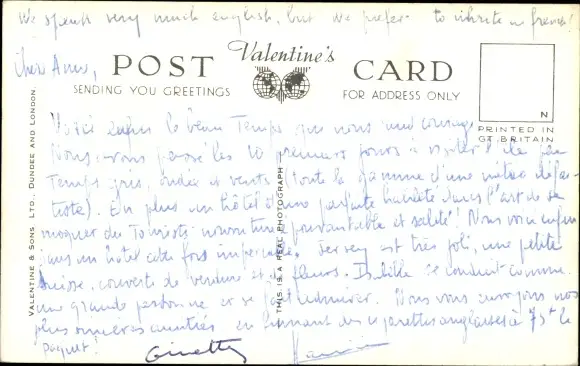 We speak very much english, but we prefer to write in french!
Chers Amis,
Valentine's
POST CARD
SENDING YOU GREETINGS
FOR ADDRESS ONLY
N
PRINTED IN
GT. BRITAIN
VALENTINE & SONS LTD., DUNDEE AND LONDON.
THIS IS A REAL PHOTOGRAPH
Voici enfin le beau temps que nous
Nous avons passé les 10 premiers jours à visiter l'île par
temps gris, ondée et vents (toute la gamme d'une météo défai-
tiste). En plus un hôtel d'une parfaite habileté dans l'art de se
moquer des touristes: nourriture épouvantable et saleté! Nous voici enfin
dans un hôtel cette fois impeccable. Jersey est très joli, une petite
Suisse, couverte de verdure et de fleurs. Isabelle se conduit comme
une grande personne et se fait admirer. Nous vous envoyons nos
plus sincères amitiés en fumant des cigarettes anglaises à 75 le
paquet!
Ginette